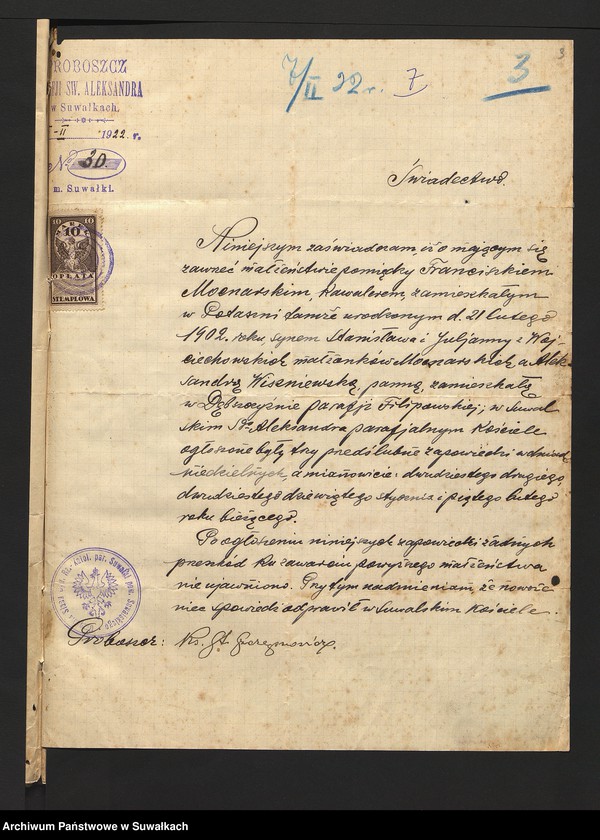 PROBOSZCZ
ŚW. ALEKSANDRA
w Suwałkach.
-II 1922. r.
№ 30.
m. Suwałki.
7/II 22 r. 7
3
3
Świadectwo.
10 10
10
OPŁATA
STEMPLOWA
Niniejszym zaświadczam, iż o mającym się
zawrzeć małżeństwie pomiędzy Franciszkiem
Mocnarskim, kawalerem, zamieszkałym
w Potaszni tamże urodzonym d. 21 lutego
1902. roku, synem Stanisława i Juljanny z Woj-
ciechowskich małżonków Mocnarskich, a Alek-
sandrą Wiszniewską, panną, zamieszkałą
w parafji Filipowskiej; w Suwal-
skim Św. Aleksandra parafjalnym Kościele
ogłoszone były trzy przedślubne zapowiedzi w dniach
niedzielnych, a mianowicie: dwudziestego drugiego,
dwudziestego dziewiątego stycznia i piątego lutego
roku bieżącego.
Po ogłoszeniu niniejszych zapowiedzi żadnych
przeszkód ku zawarciu powyższego małżeństwa
nie ujawniono. Przytym nadmieniam, że nowożе-
niec spowiedź odprawił w Suwalskim Kościele.
Proboszcz: Ks. St.
Archiwum Państwowe w Suwałkach